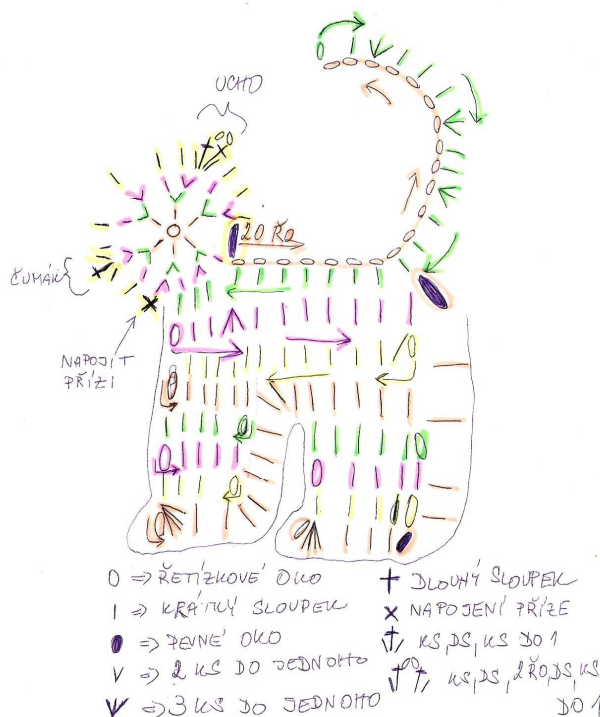 UCHO
20 ŘO
ČUMÁK
NAPOJIT
PŘÍZI
0 => ŘETÍZKOVÉ OKO
| => KRÁTKÝ SLOUPEK
=> PEVNÉ OKO
V => 2 KS DO JEDNOHO
=> 3 KS DO JEDNOHO
DLOUHÝ SLOUPEK
× NAPOJENÍ PŘÍZE
KS, DS, KS DO 1
KS, DS, 2 ŘO, DS, KS
DO 1